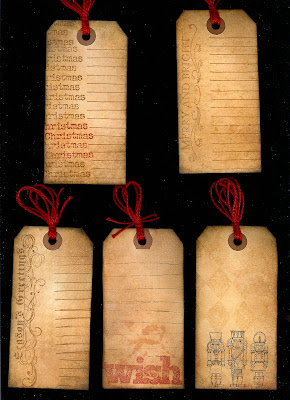 Christmas
Christmas
Christmas
Christmas
Christmas
Christmas
Christmas
Christmas
Christmas
hristmas
Christmas
hristmas
Christmas
Christmas
Christmas
MERRY AND BRIGHT
Season's Greetings
wish